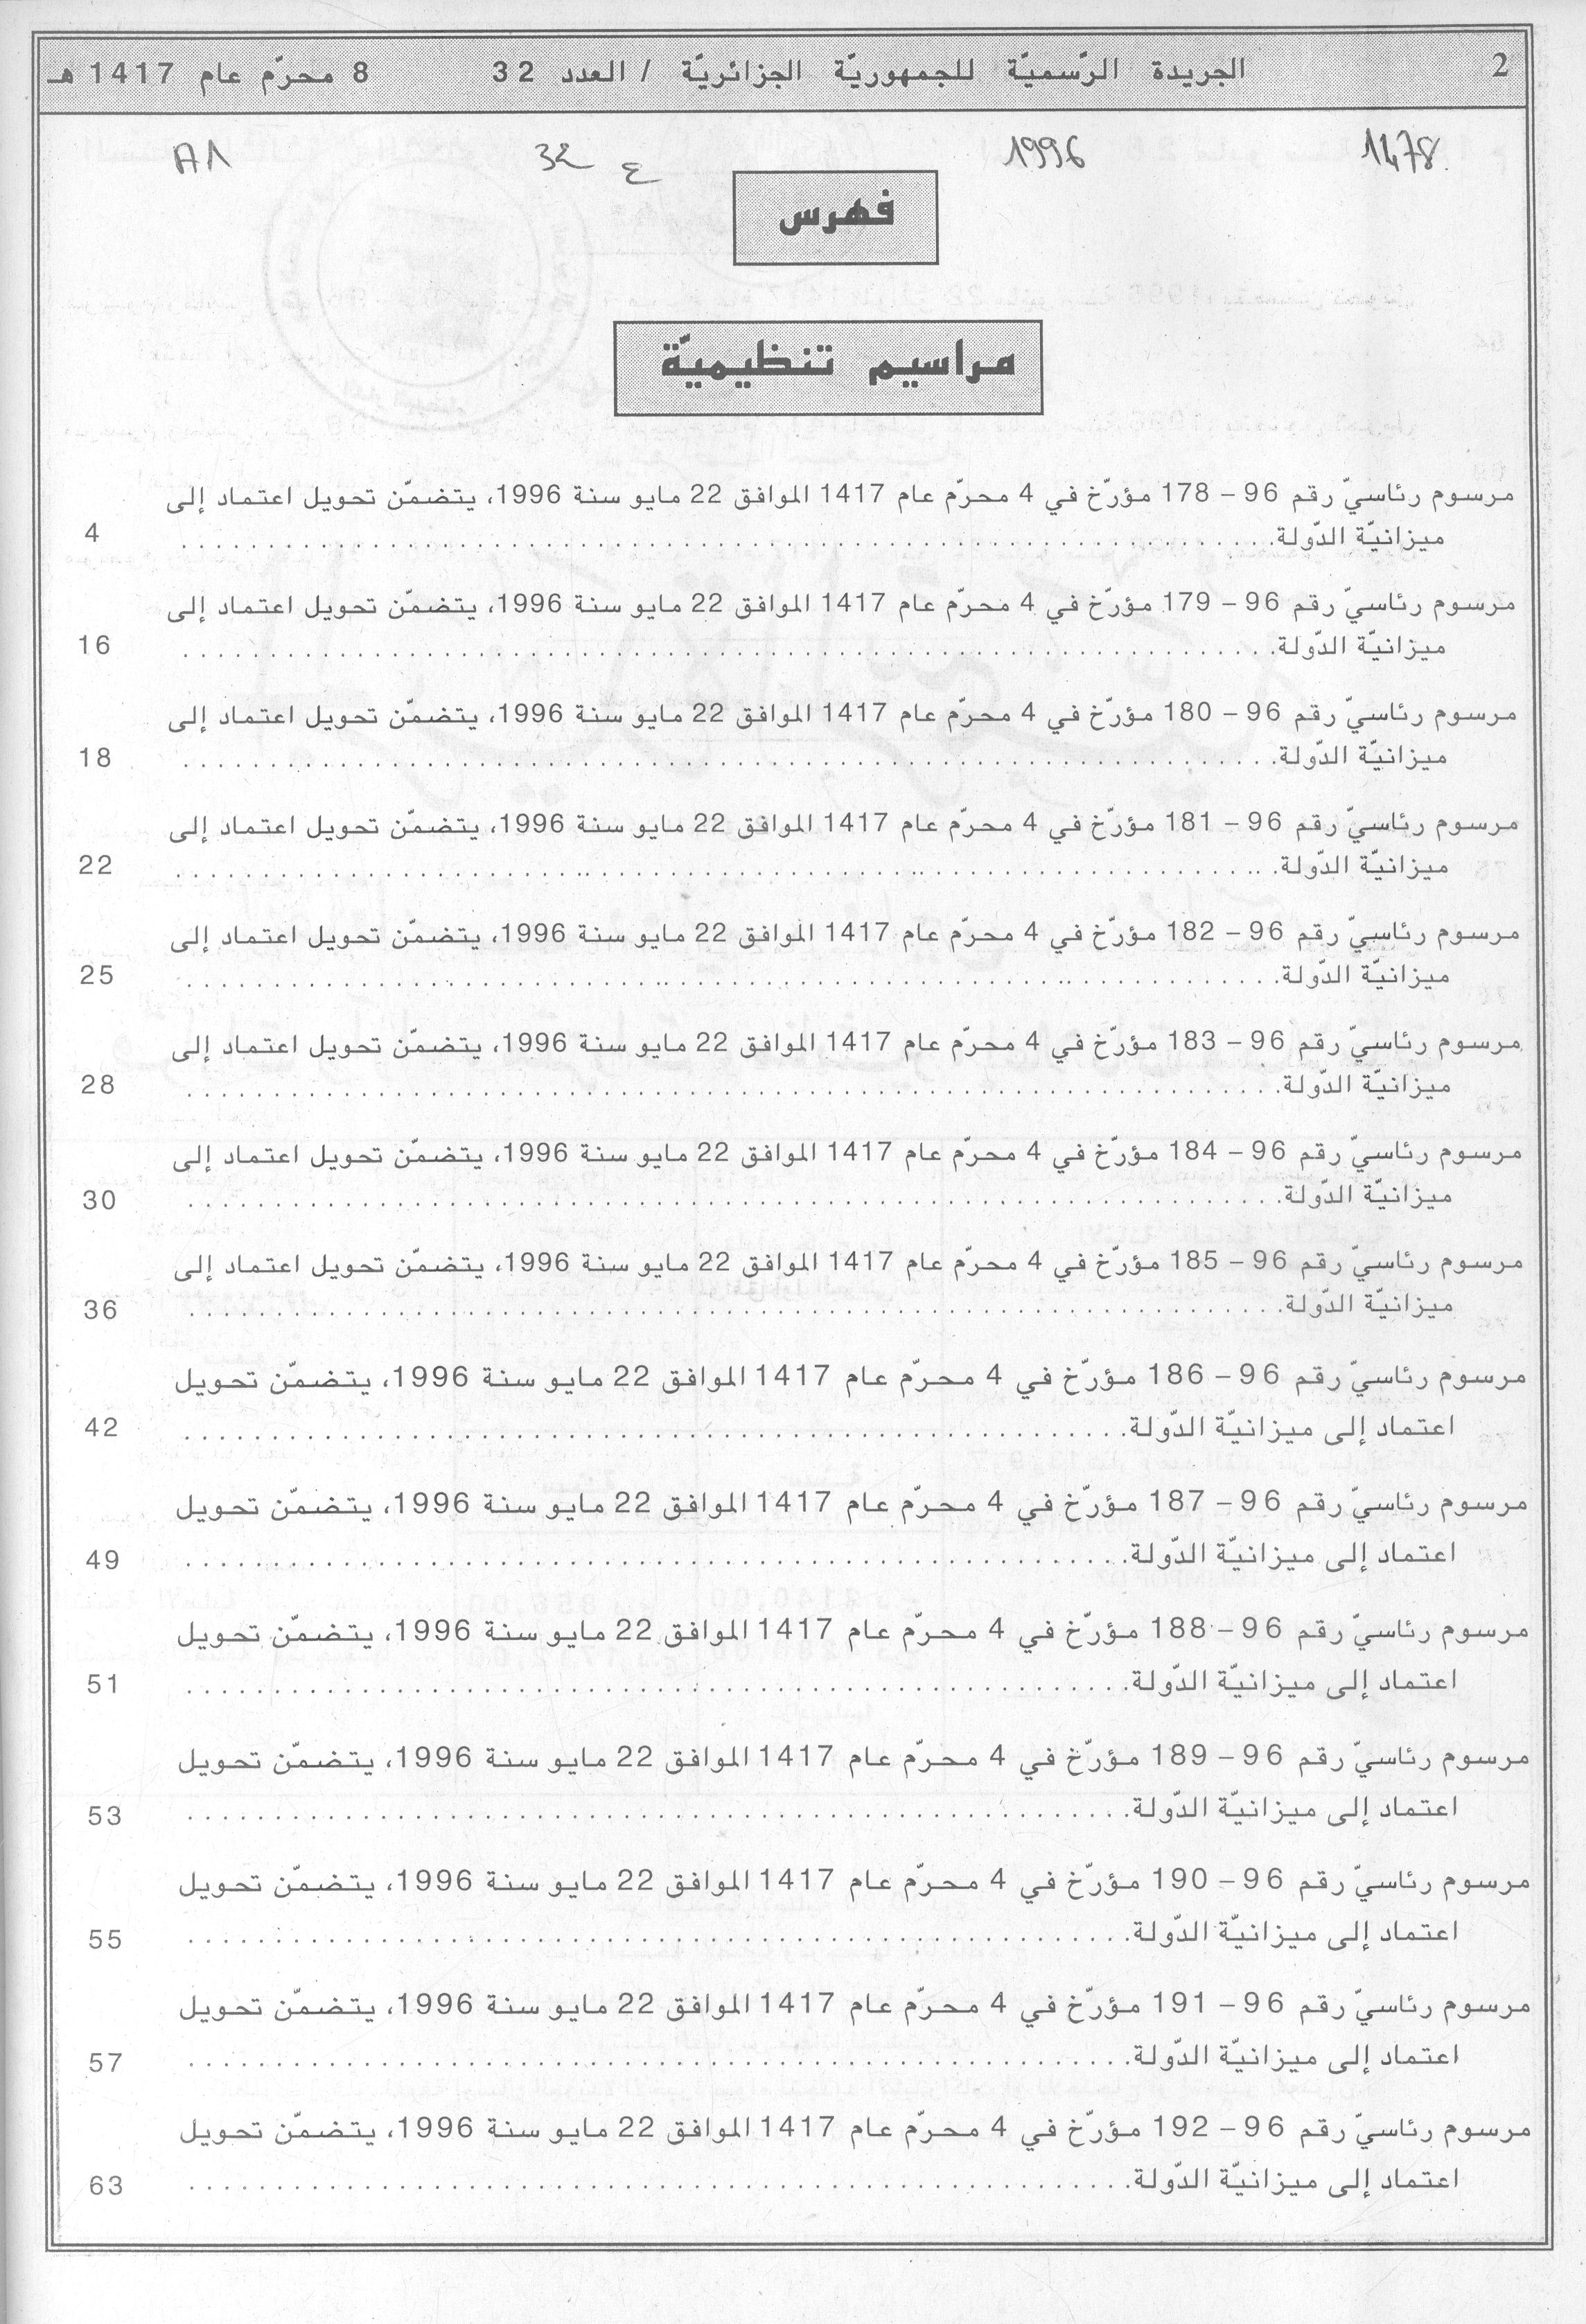 2 الجريدة الرّسميّة للجمهوريّة الجزائريّة / العدد 32 8 محرّم عام 1417 هـ
1478 1996 ع 32 A1
فهرس
مراسيم تنظيميّة
مرسوم رئاسيّ رقم 96 – 178 مؤرّخ في 4 محرّم عام 1417 الموافق 22 مايو سنة 1996، يتضمّن تحويل اعتماد إلى
ميزانيّة الدّولة. . . . . . . . . . 4
مرسوم رئاسيّ رقم 96 – 179 مؤرّخ في 4 محرّم عام 1417 الموافق 22 مايو سنة 1996، يتضمّن تحويل اعتماد إلى
ميزانيّة الدّولة. . . . . . . . . . 16
مرسوم رئاسيّ رقم 96 – 180 مؤرّخ في 4 محرّم عام 1417 الموافق 22 مايو سنة 1996، يتضمّن تحويل اعتماد إلى
ميزانيّة الدّولة. . . . . . . . . . 18
مرسوم رئاسيّ رقم 96 – 181 مؤرّخ في 4 محرّم عام 1417 الموافق 22 مايو سنة 1996، يتضمّن تحويل اعتماد إلى
ميزانيّة الدّولة. . . . . . . . . . 22
مرسوم رئاسيّ رقم 96 – 182 مؤرّخ في 4 محرّم عام 1417 الموافق 22 مايو سنة 1996، يتضمّن تحويل اعتماد إلى
ميزانيّة الدّولة. . . . . . . . . . 25
مرسوم رئاسيّ رقم 96 – 183 مؤرّخ في 4 محرّم عام 1417 الموافق 22 مايو سنة 1996، يتضمّن تحويل اعتماد إلى
ميزانيّة الدّولة. . . . . . . . . . 28
مرسوم رئاسيّ رقم 96 – 184 مؤرّخ في 4 محرّم عام 1417 الموافق 22 مايو سنة 1996، يتضمّن تحويل اعتماد إلى
ميزانيّة الدّولة. . . . . . . . . . 30
مرسوم رئاسيّ رقم 96 – 185 مؤرّخ في 4 محرّم عام 1417 الموافق 22 مايو سنة 1996، يتضمّن تحويل اعتماد إلى
ميزانيّة الدّولة. . . . . . . . . . 36
مرسوم رئاسيّ رقم 96 – 186 مؤرّخ في 4 محرّم عام 1417 الموافق 22 مايو سنة 1996، يتضمّن تحويل
اعتماد إلى ميزانيّة الدّولة. . . . . . . . . . 42
مرسوم رئاسيّ رقم 96 – 187 مؤرّخ في 4 محرّم عام 1417 الموافق 22 مايو سنة 1996، يتضمّن تحويل
اعتماد إلى ميزانيّة الدّولة. . . . . . . . . . 49
مرسوم رئاسيّ رقم 96 – 188 مؤرّخ في 4 محرّم عام 1417 الموافق 22 مايو سنة 1996، يتضمّن تحويل
اعتماد إلى ميزانيّة الدّولة. . . . . . . . . . 51
مرسوم رئاسيّ رقم 96 – 189 مؤرّخ في 4 محرّم عام 1417 الموافق 22 مايو سنة 1996، يتضمّن تحويل
اعتماد إلى ميزانيّة الدّولة. . . . . . . . . . 53
مرسوم رئاسيّ رقم 96 – 190 مؤرّخ في 4 محرّم عام 1417 الموافق 22 مايو سنة 1996، يتضمّن تحويل
اعتماد إلى ميزانيّة الدّولة. . . . . . . . . . 55
مرسوم رئاسيّ رقم 96 – 191 مؤرّخ في 4 محرّم عام 1417 الموافق 22 مايو سنة 1996، يتضمّن تحويل
اعتماد إلى ميزانيّة الدّولة. . . . . . . . . . 57
مرسوم رئاسيّ رقم 96 – 192 مؤرّخ في 4 محرّم عام 1417 الموافق 22 مايو سنة 1996، يتضمّن تحويل
اعتماد إلى ميزانيّة الدّولة. . . . . . . . . . 63